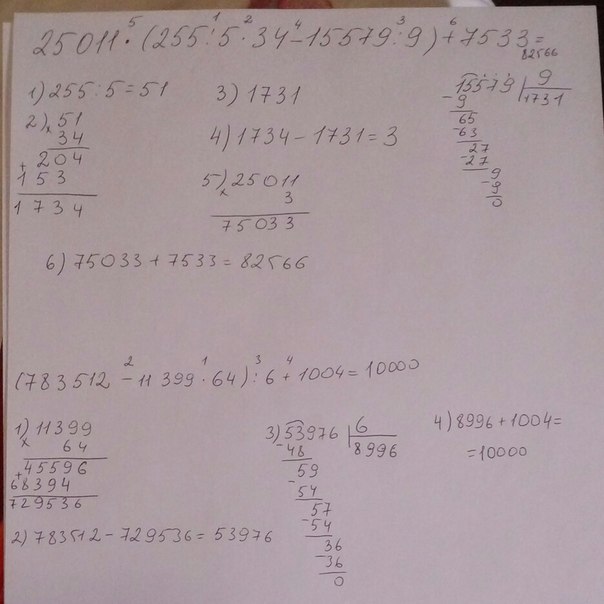 25011·(255:5·34-15579:9)+7533=
5 1 2 4 3 6
82566
1) 255:5=51
2) 51
x 34
+ 204
153
1734
3) 1731
4) 1734-1731=3
5) 25011
x 3
75033
15579 | 9
- 9 1731
65
-63
27
-27
9
-9
0
6) 75033+7533=82566
(783512-11399·64):6+1004=10000
2 1 3 4
1) 11399
x 64
+45596
68394
729536
2) 783512-729536=53976
3) 53976 | 6
-48 8996
59
-54
57
-54
36
-36
0
4) 8996+1004=
=10000